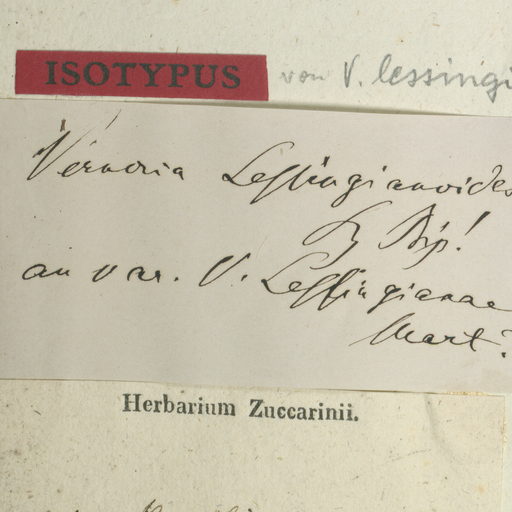 ISOTYPUS von V. lessingi
Vernonia Lessingianoides
Bip!
an var. V. Lessingianae
Mart?
Herbarium Zuccarinii.